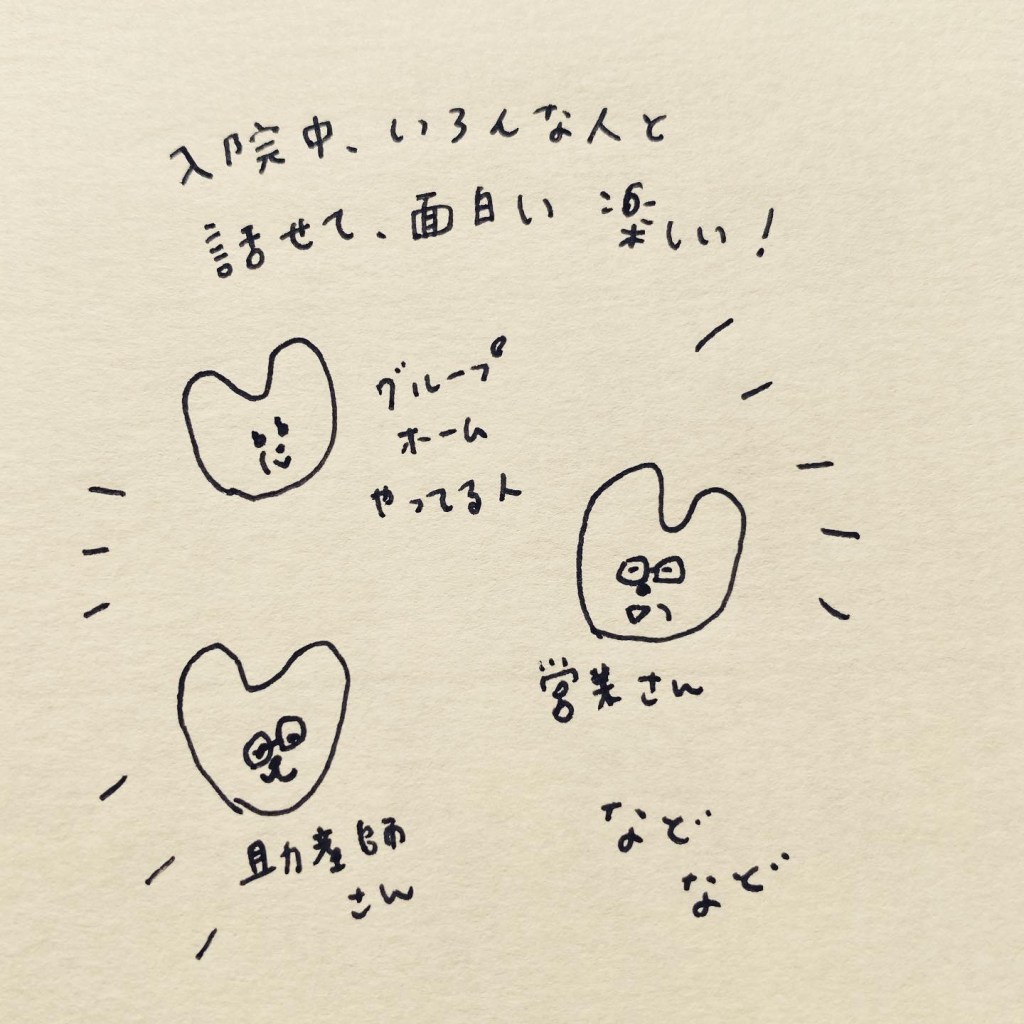 入院中、いろんな人と
話せて、面白い 楽しい!
グループ
ホーム
やってる人
営業さん
助産師
さん
などなど